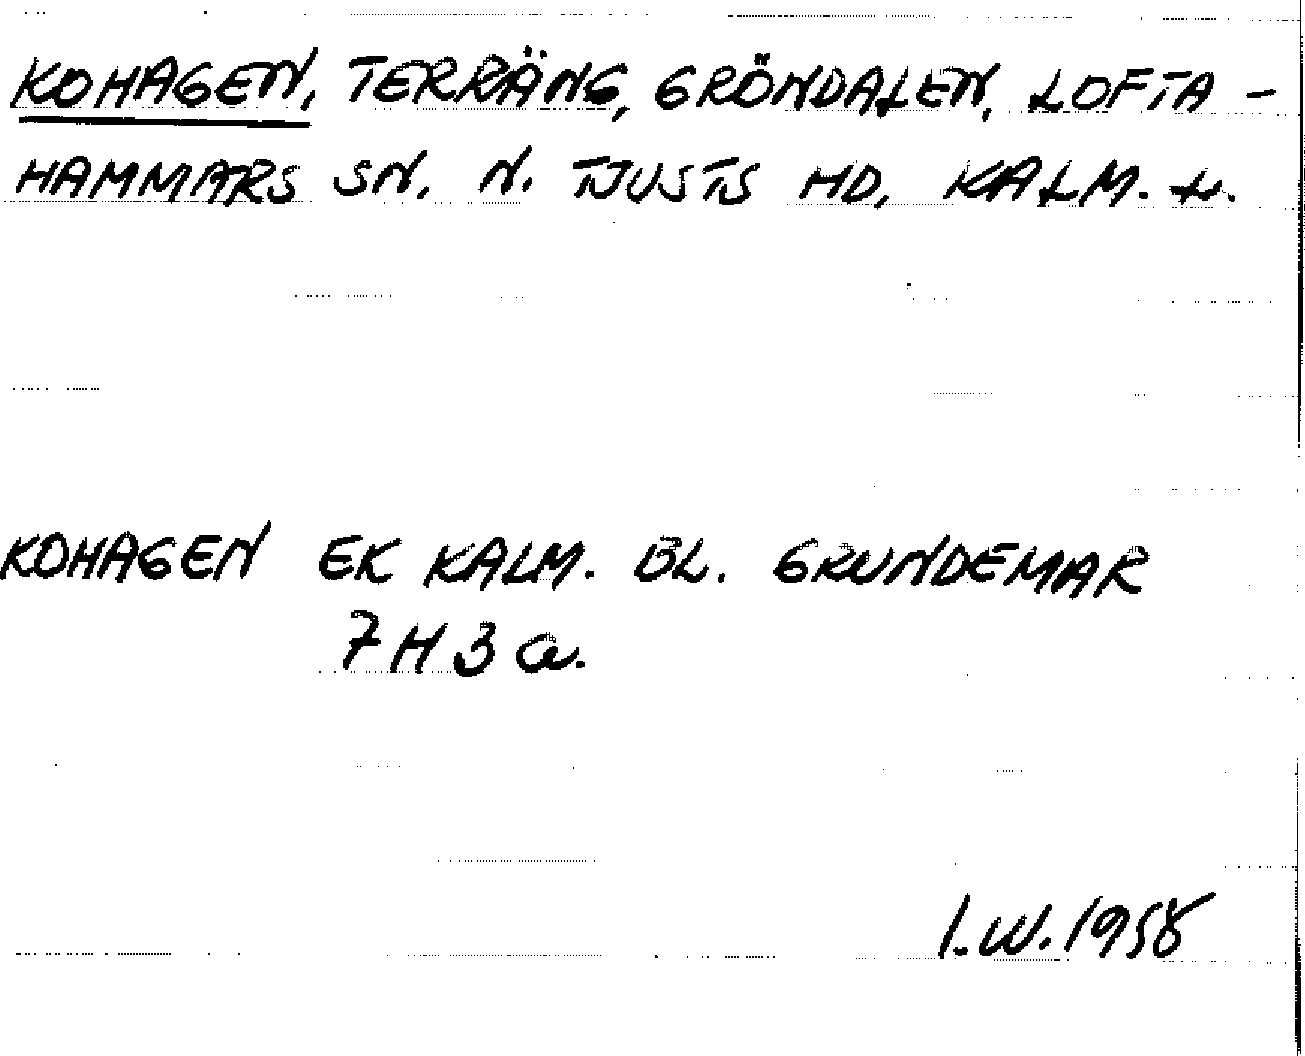 KOHAGEN, TERRÄNG, GRÖNDALEN, LOFTA-
HAMMARS SN. N. TJUSTS HD, KALM. L.
KOHAGEN EK KALM. BL. GRUNDEMAR
7 H 3 a.
I.W. 1958